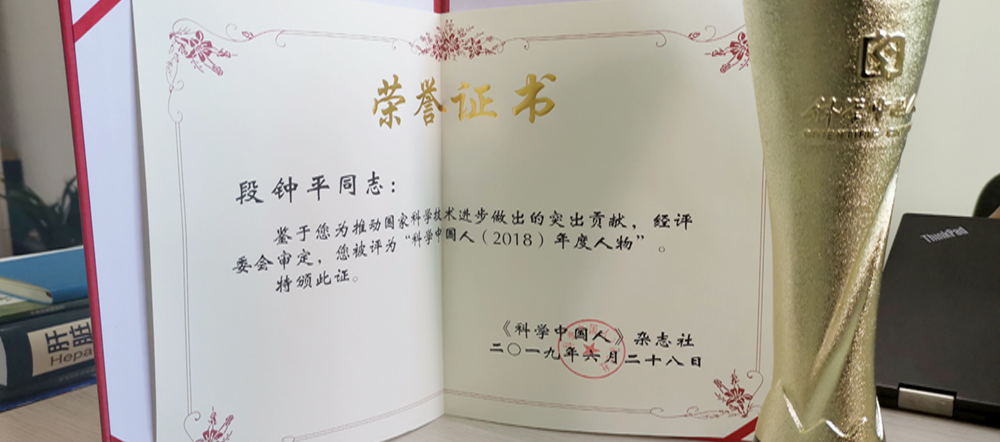 荣誉证书
段钟平同志：
鉴于您为推动国家科学技术进步做出的突出贡献，经评
委会审定，您被评为“科学中国人（2018）年度人物”。
特颁此证。
《科学中国人》杂志社
二〇一九年六月二十八日
ThinkPad
肝脏
Hepa